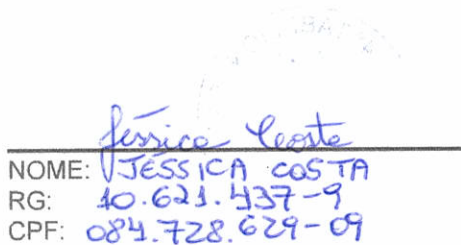 Jéssica Costa
NOME: JÉSSICA COSTA
RG: 10.621.437-9
CPF: 084.728.629-09